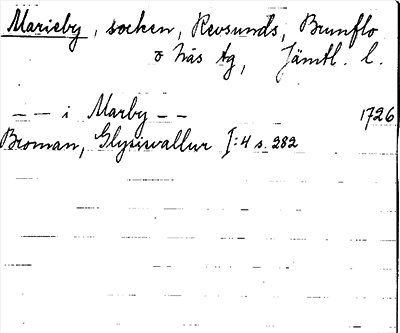 Marieby, socken, Revsunds, Brunflo
o Näs tg, Jämtl. l.
– – i Marby – – 1726
Broman, Glysisvallur I:4 s. 282